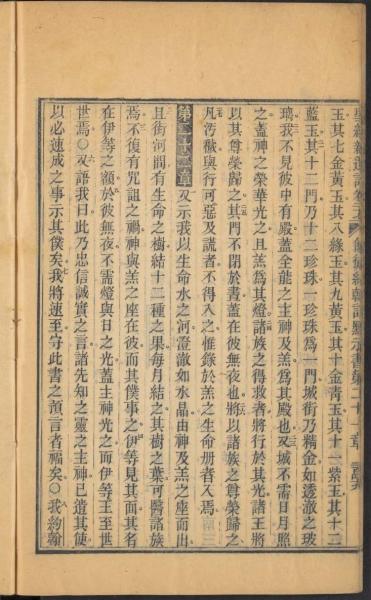 聖經
書第二十一章
玉其七金黃玉其八綠玉其九黃玉其十金青玉其十一紫玉其十二
藍玉其十二門乃十二珍珠一珍珠爲一門城街乃精金如透澈之玻
璃我不見彼中有殿蓋全能之主神及羔爲其殿也又城不需日月照
之蓋神之榮華光之且羔爲其燈諸族之得救者將行於其光諸王將
以其尊榮歸之其門不閉於晝蓋在彼無夜也將以諸族之尊榮歸之
凡汚穢與行可惡及謊者不得入之惟錄於羔之生命册者入焉
第二十二章又示我以生命水之河澄澈如水晶由神及羔之座而出
且街河間有生命之樹結十二種之果每月結之其樹之葉可醫諸族
焉不復有咒詛之禍神與羔之座在彼而其僕事之伊等見其面其名
在伊等之額於彼無夜不需燈與日之光蓋主神光之而伊等王至世
世焉○又語我曰此乃忠信誠實之言諸先知之靈之主神已遣其使
以必速成之事示其僕矣我將速至守此書之預言者福矣○我約翰